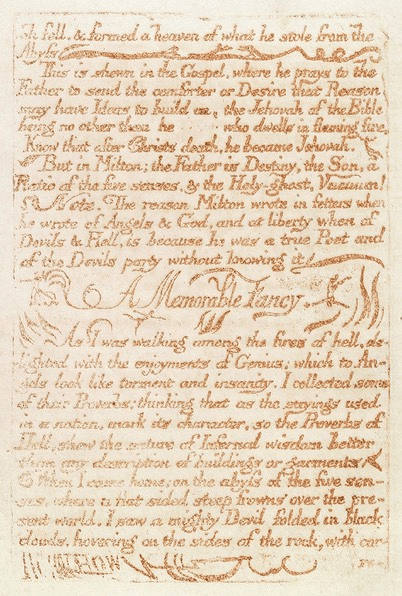 ah fell, & formed a heaven of what he stole from the
Abyss
This is shewn in the Gospel, where he prays to the
Father to send the comforter or Desire that Reason
may have Ideas to build on, the Jehovah of the Bible
being no other than he who dwells in flaming fire,
Know that after Christs death, he became Jehovah.
But in Milton; the Father is Destiny, the Son, a
Ratio of the five senses, & the Holy-ghost, Vacuum!
Note. The reason Milton wrote in fetters when
he wrote of Angels & God, and at liberty when of
Devils & Hell, is because he was a true Poet and
of the Devils party without knowing it
A Memorable Fancy
As I was walking among the fires of hell, de-
lighted with the enjoyments of Genius; which to An-
gels look like torment and insanity. I collected some
of their Proverbs: thinking that as the sayings used
in a nation, mark its character, so the Proverbs of
Hell, shew the nature of Infernal wisdom better
than any description of buildings or garments
When I came home; on the abyss of the five sen-
ses, where a flat sided steep frowns over the pre-
sent world. I saw a mighty Devil folded in black
clouds, hovering on the sides of the rock, with cor-